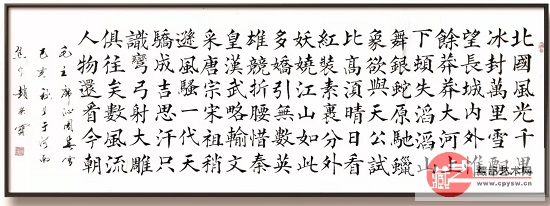 北國風光千里
冰封萬里雪飄
望長城內外惟
餘莽莽大河上
下頓失滔滔山
舞銀蛇原馳蠟
象欲與天公試
比高須晴日看
紅裝素裹分外
妖嬈江山如此
多嬌引無數英
雄競折腰惜秦
皇漢武略輸文
采唐宗宋祖稍
遜風騷一代天
驕成吉思汗只
識彎弓射大雕
俱往矣數風流
人物還看今朝
毛主席沁園春雪
己亥 于河南
焦作 趙
藏品艺术网
www.cpysw.cn